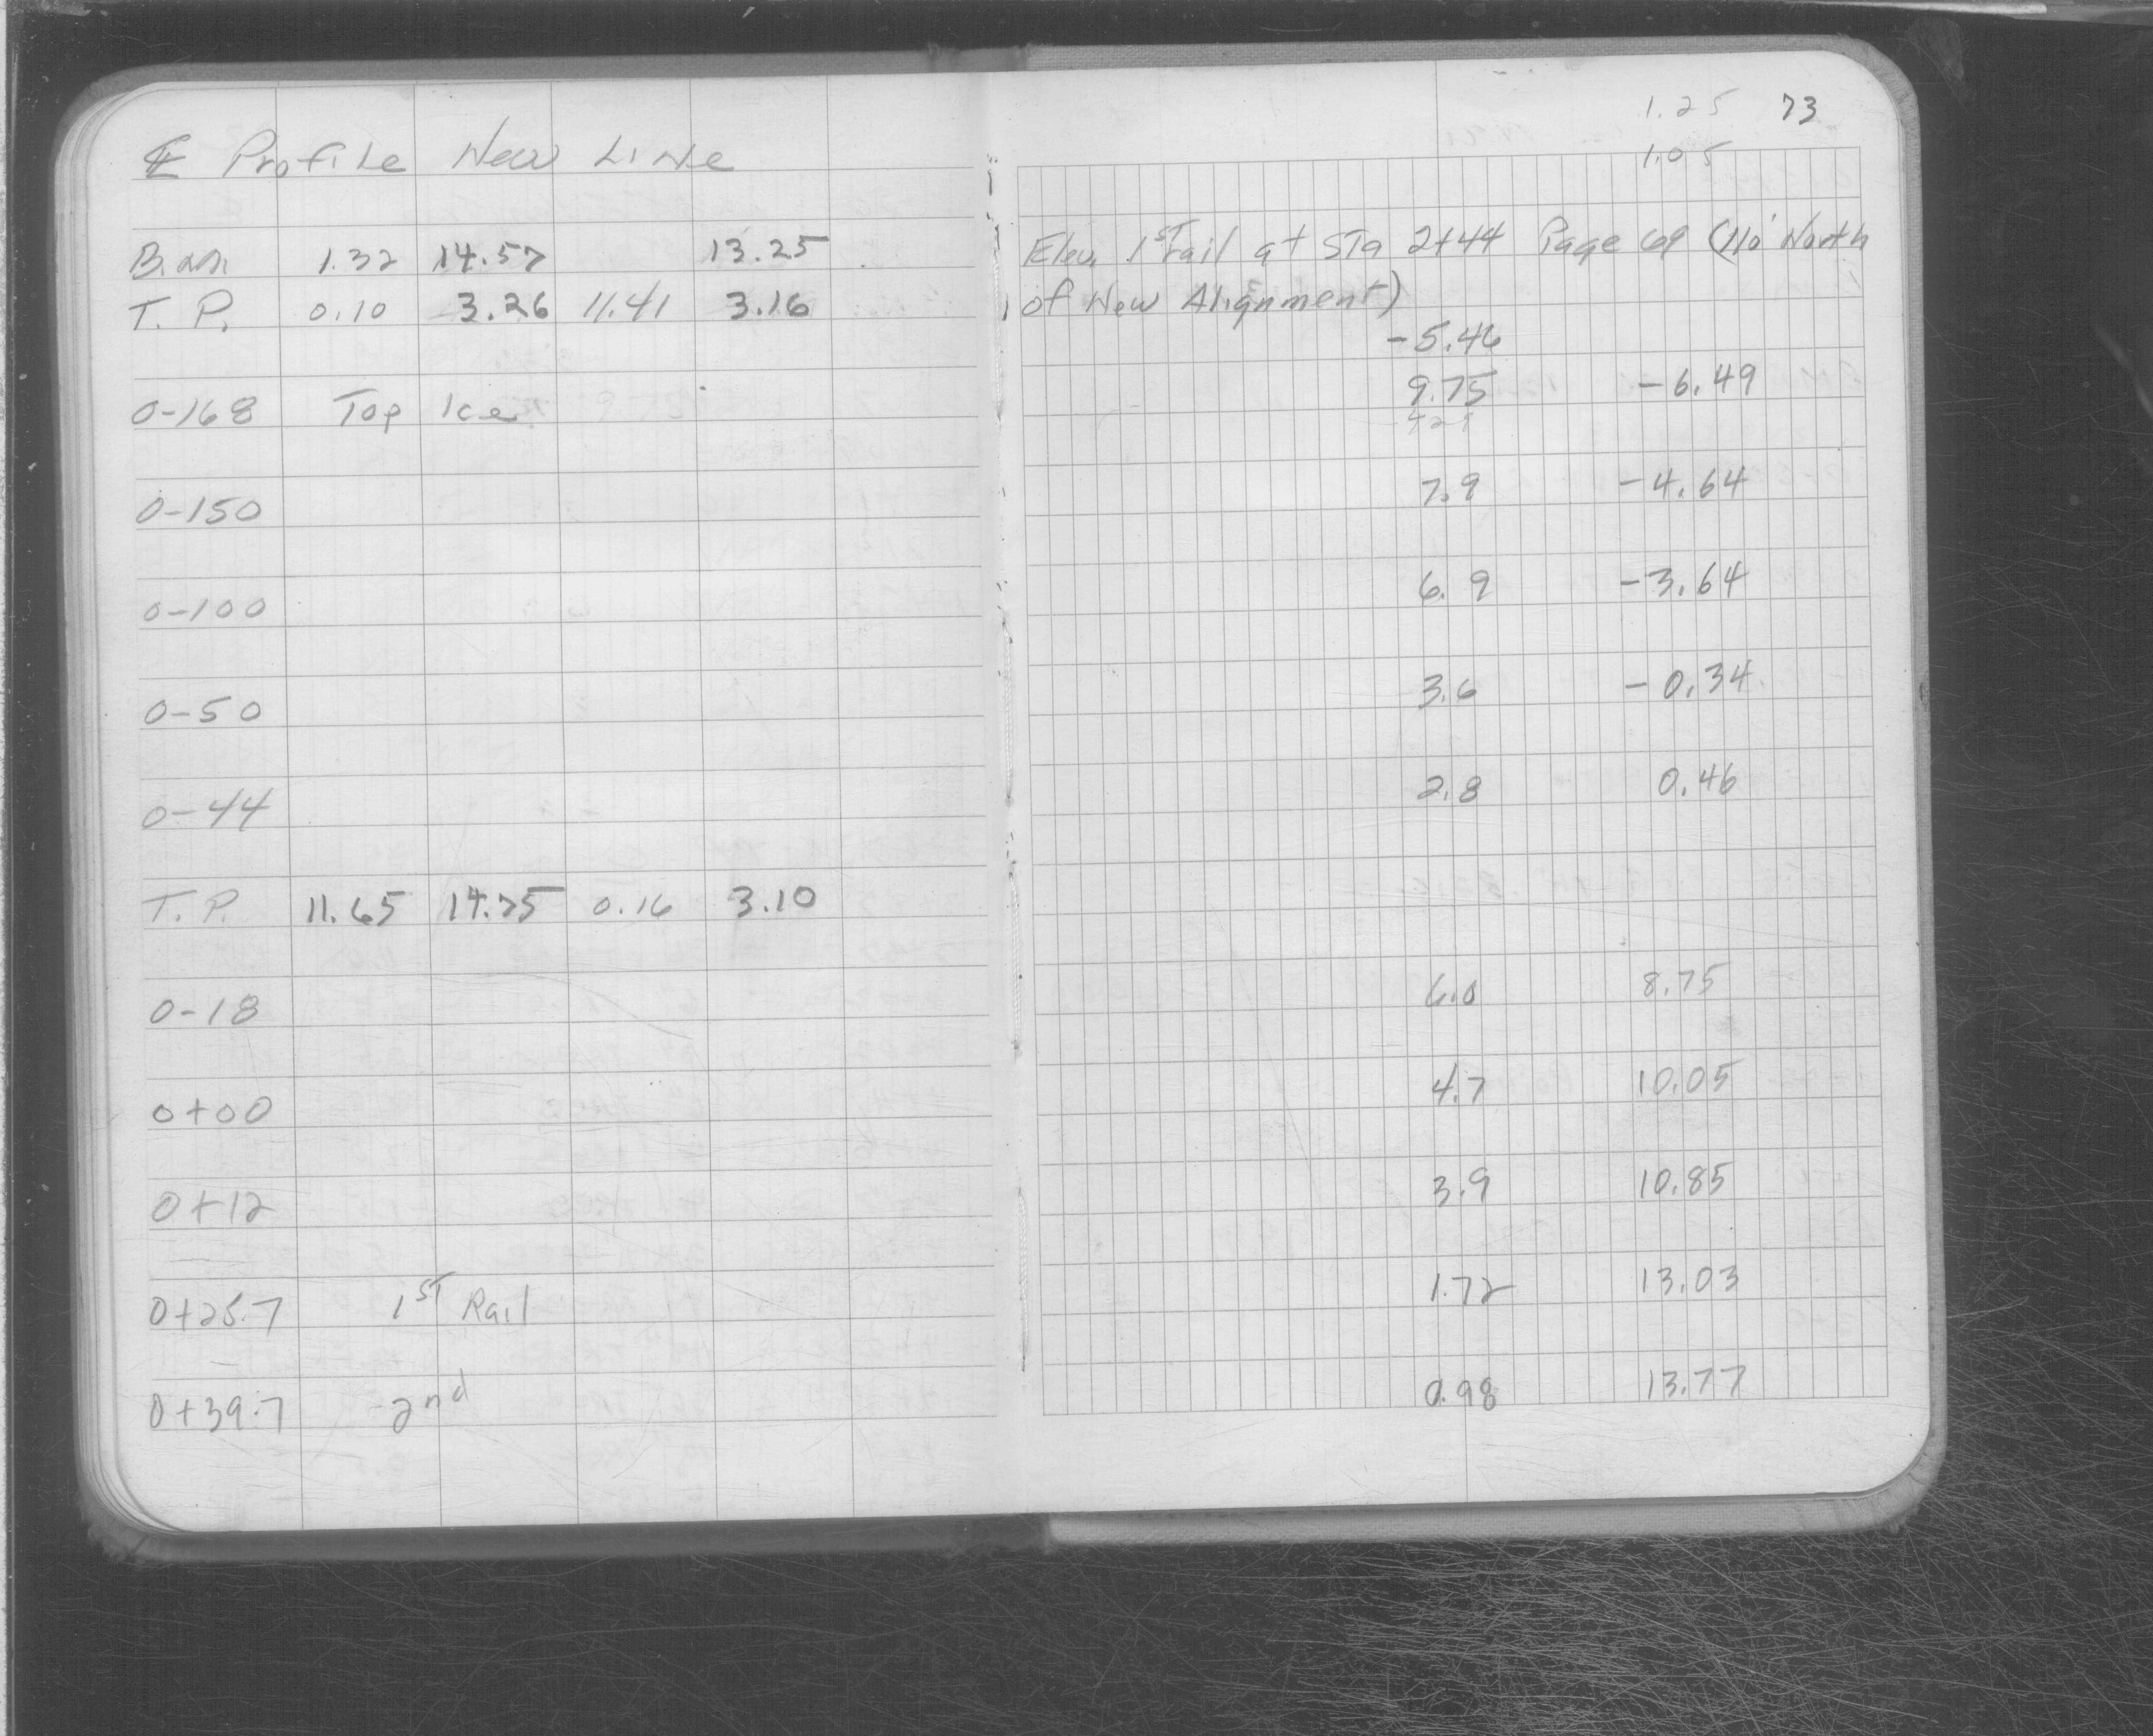 ℄ Profile New Line
B.M. 1.32 14.57 13.25
T. P. 0.10 3.26 11.41 3.16
0-168 Top Ice
0-150
0-100
0-50
0-44
T. P. 11.65 14.75 0.16 3.10
0-18
0+00
0+12
0+25.7 1ST Rail
0+39.7 2nd
1.25 73
1.05
Elev. 1ST rail at STa 2+44 Page 69 (110' North
of New Alignment)
-5.46
9.75 -6.49
7.9 -4.64
6.9 -3.64
3.6 -0.34
2.8 0.46
6.0 8.75
4.7 10.05
3.9 10.85
1.72 13.03
0.98 13.77